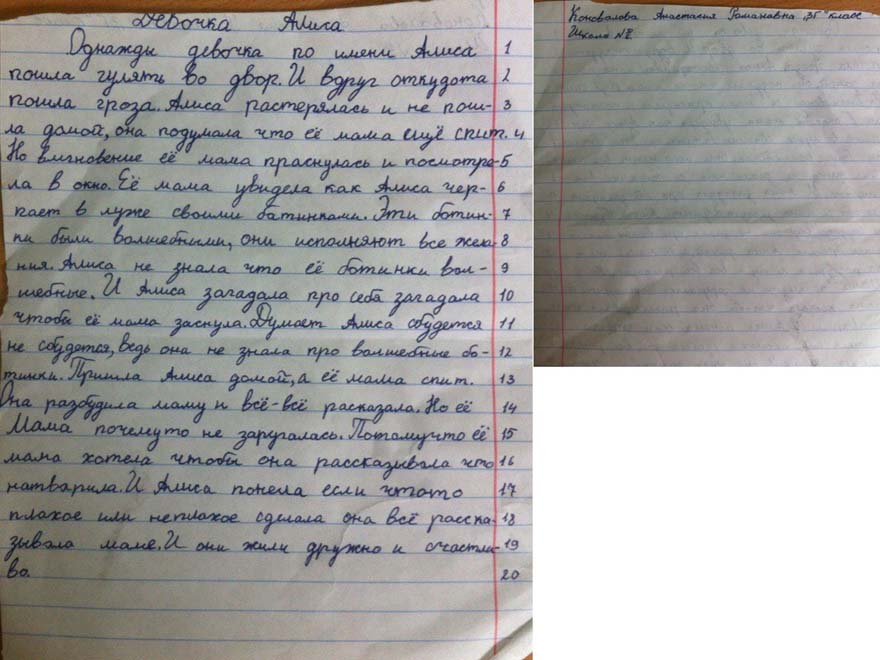 Девочка Алиса
Однажды девочка по имени Алиса 1
пошла гулять во двор. И вдруг откудота 2
пошла гроза. Алиса растерялась и не пош- 3
ла домой, она подумала что её мама ещё спит. 4
Но вмгновение её мама праснулась и посмотре- 5
ла в окно. Её мама увидела как Алиса чер- 6
пает в луже своими батинками. Эти ботин- 7
ки были волшебными, они исполняют все жела- 8
ния. Алиса не знала что её ботинки вол- 9
шебные. И Алиса загадала про себя загадала 10
чтобы её мама заснула. Думает Алиса сбудется 11
не сбудется, ведь она не знала про валшебные бо- 12
тинки. Пришла Алиса домой, а её мама спит. 13
Она разбудила маму и всё-всё расказала. Но её 14
мама почемуто не заругалась. Потамучто её 15
мама хотела чтобы она рассказывала что 16
натварила. И Алиса понела если чтото 17
плахое или неплахое сделала она всё расска- 18
зывала маме. И они жили дружно и счастли- 19
во. 20
Коновалова Анастасия Романовна "3Г" класс
Школа №8